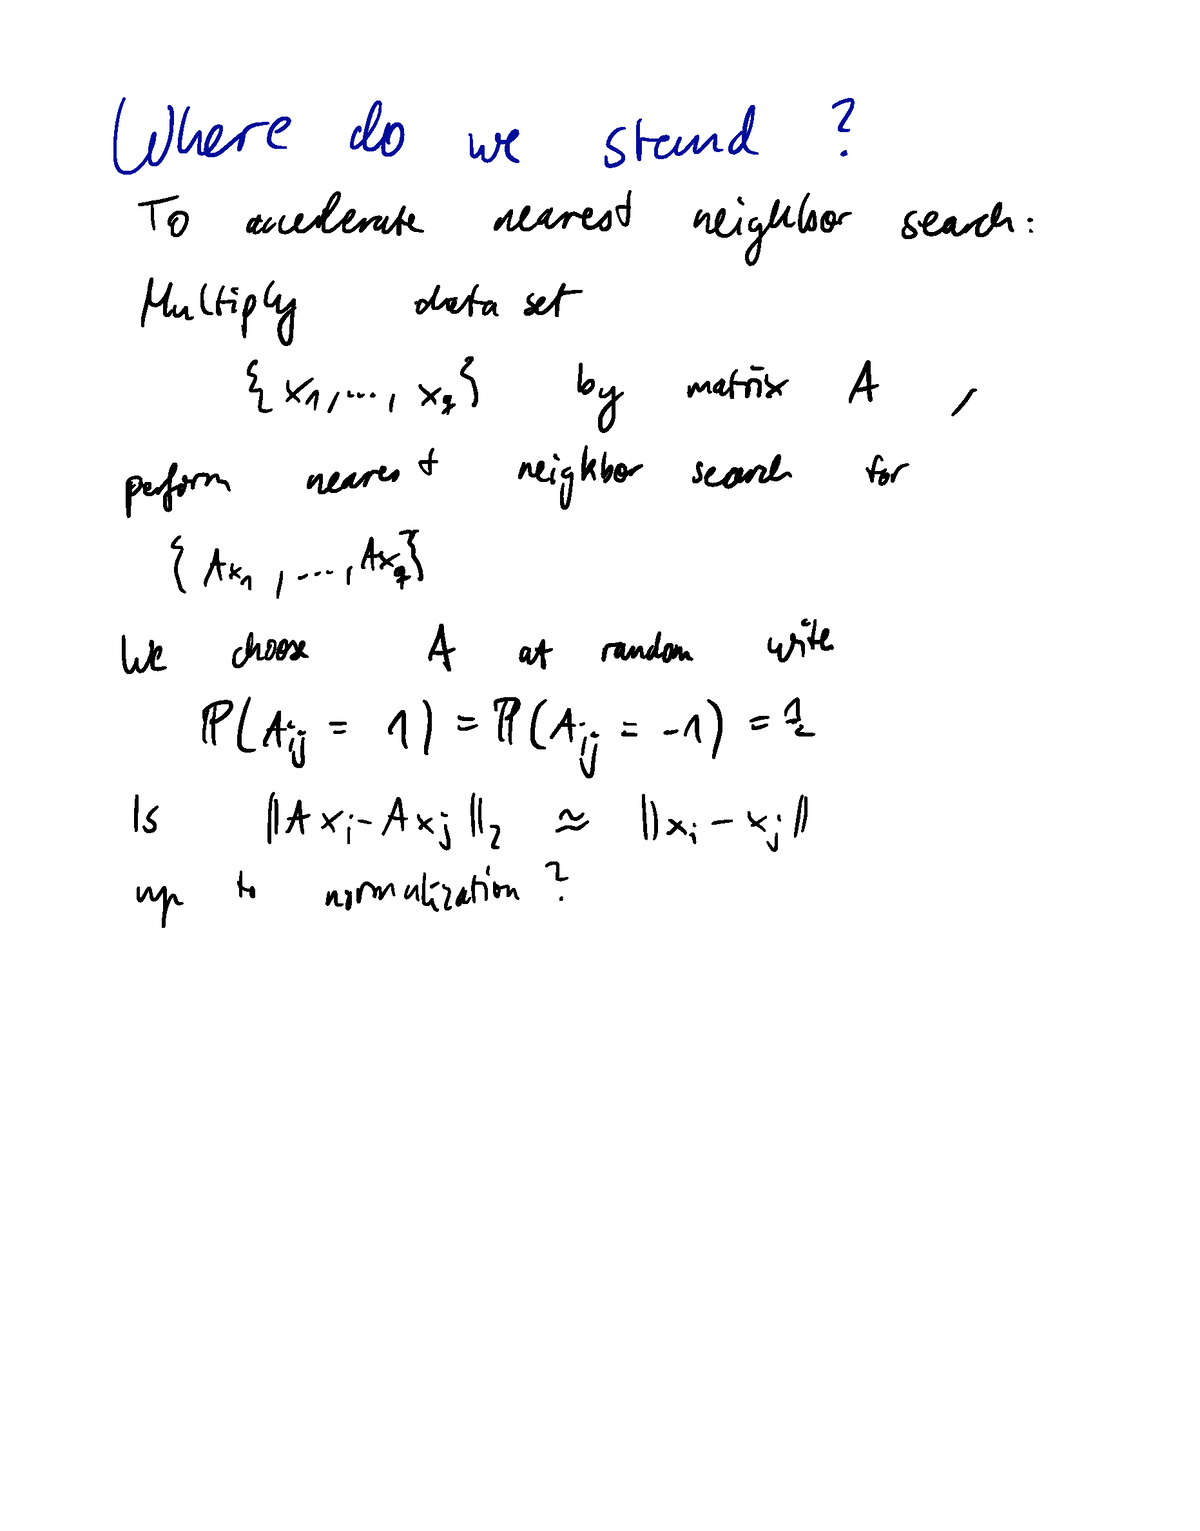 Where do we stand ?
To accelerate nearest neighbor search:
Multiply data set
{ x₁,..., x_q } by matrix A ,
perform nearest neighbor search for
{ Ax₁ , ..., Ax_q }
We choose A at random write
ℙ(A_ij = 1) = ℙ(A_ij = -1) = ½
Is ||A x_i - A x_j ||₂ ≈ ||x_i - x_j||
up to normalization ?